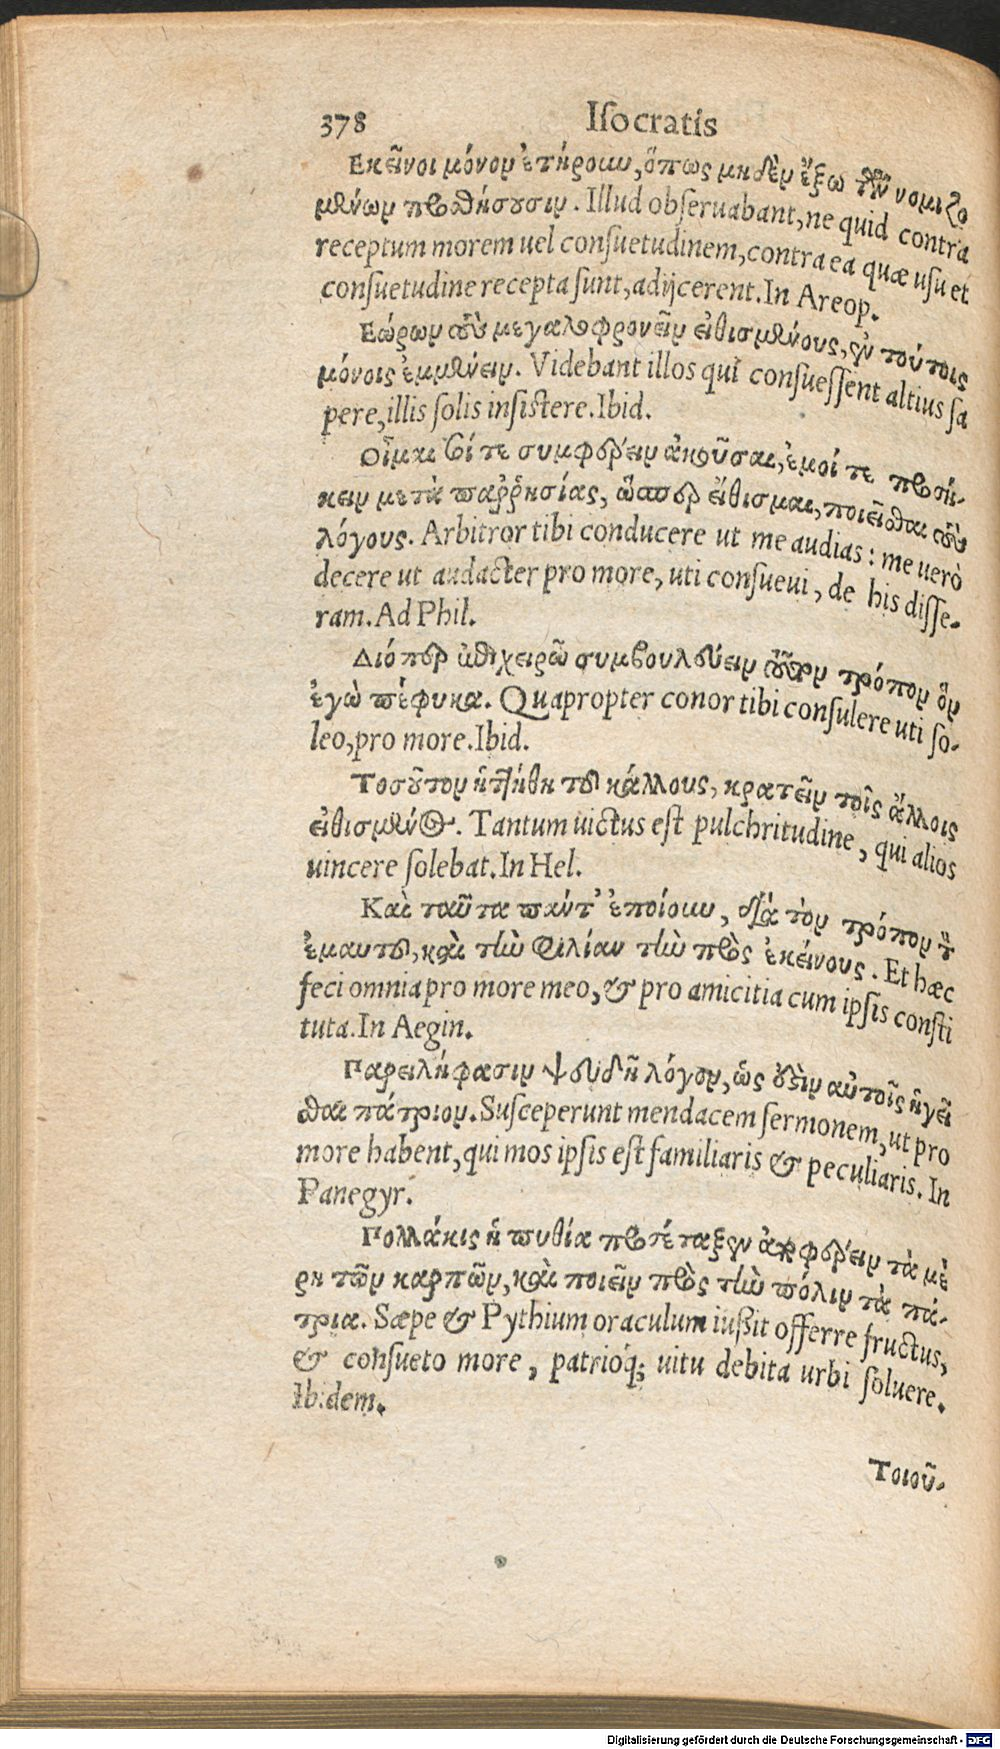 378 Iſocratis
Εκεῖνοι μόνον ἐτήρουν, ὅπως μηδὲν ἔξω τῶν νομιζο
μένων προσθήσουσιν. Illud obſeruabant, ne quid contra
receptum morem uel conſuetudinem, contra ea quæ uſu et
conſuetudine recepta ſunt, adijcerent. In Areop.
Εώρων τοὺς μεγαλοφρονεῖν εἰθισμένους, ἐν τούτοις
μόνοις ἐμμένειν. Videbant illos qui conſueſſent altius ſa
pere, illis ſolis inſiſtere. Ibid.
Οἶμαι σοί τε συμφέρειν ἀκοῦσαι, ἐμοί τε προσή-
κειν μετὰ παῤῥησίας, ὥσπερ εἴθισμαι, ποιεῖσθαι τοὺς
λόγους. Arbitror tibi conducere ut me audias: me uerò
decere ut audacter pro more, uti conſueui, de his diſſe-
ram. Ad Phil.
Διόπερ ἐπιχειρῶ συμβουλεύειν τοῦτον τρόπον ὃν
ἐγὼ πέφυκα. Quapropter conor tibi conſulere uti ſo-
leo, pro more. Ibid.
Τοσοῦτον ἡττήθη τοῦ κάλλους, κρατεῖν τοῖς ἄλλοις
εἰθισμένος. Tantum uictus eſt pulchritudine, qui alios
uincere ſolebat. In Hel.
Καὶ ταῦτα πάντ' ἐποίουν, διὰ τὸν τρόπον τὸν
ἐμαυτοῦ, καὶ τὴν φιλίαν τὴν πρὸς ἐκείνους. Et hæc
feci omnia pro more meo, & pro amicitia cum ipſis conſti
tuta. In Aegin.
Παρειλήφασιν ψευδῆ λόγον, ὡς οὖσιν αὐτοῖς ἡγεῖ
σθαι πάτριον. Suſceperunt mendacem ſermonem, ut pro
more habent, qui mos ipſis eſt familiaris & peculiaris. In
Panegyr.
Πολλάκις ἡ πυθία προσέταξεν ἀποφέρειν τὰ μέ
ρη τῶν καρπῶν, καὶ ποιεῖν πρὸς τὴν πόλιν τὰ πά-
τρια. Sæpe & Pythium oraculum iußit offerre fructus,
& conſueto more, patrioq́; uitu debita urbi ſoluere.
Ibidem.
Τοιοῦ-
Digitalisierung gefördert durch die Deutsche Forschungsgemeinschaft - DFG